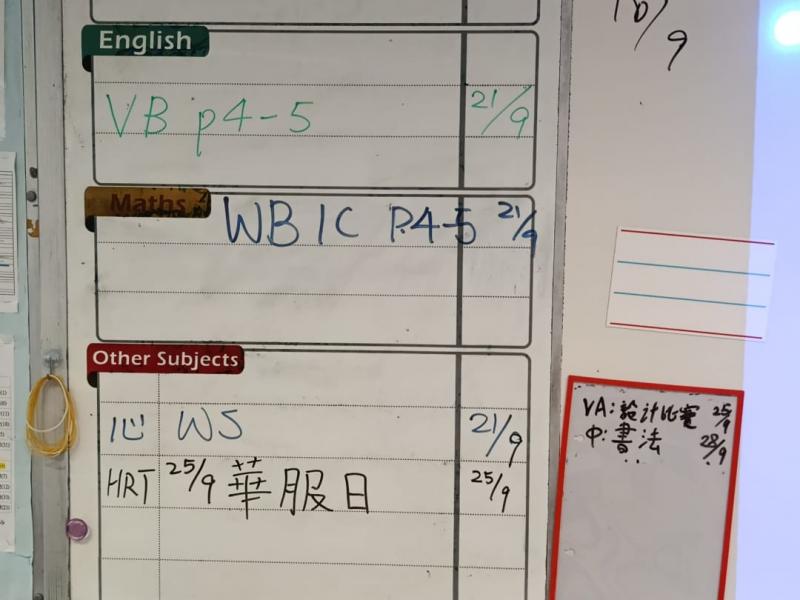 16/9
English
VB p4-5 21/9
Maths
WB 1C P.4-5 21/9
Other Subjects
心 WS 21/9
HRT 25/9 華服日 25/9
VA: 計比賽 25/9
中: 書法 28/9